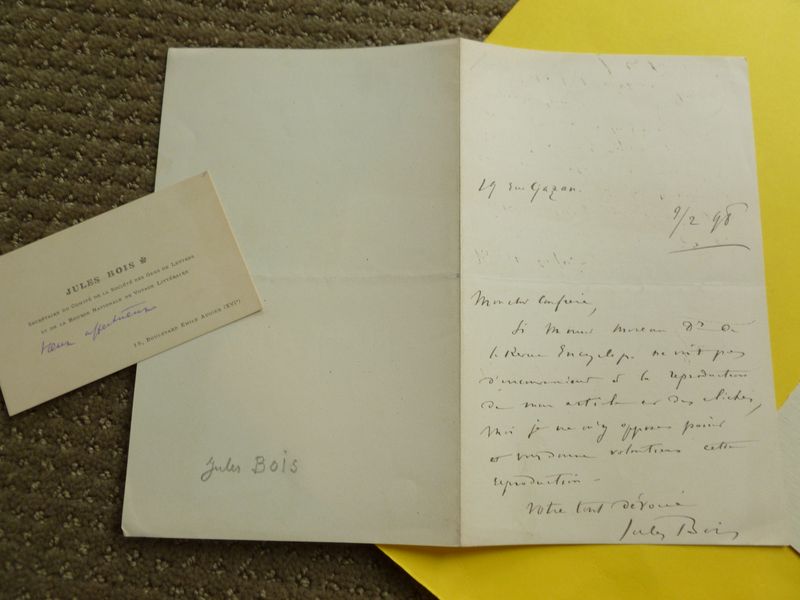 JULES BOIS
SECRÉTAIRE DU COMITÉ DE LA SOCIÉTÉ DES GENS DE LETTRES
ET DE LA BOURSE NATIONALE DE VOYAGE LITTÉRAIRE
vœux affectueux
15, BOULEVARD EMILE AUGIER (XVIe)
Jules BOIS
19 rue Gazan.
9/2 98
Mon cher Confrère,
Si Monsieur Moreau Dr de
la Revue Encyclop. ne voit pas
d'inconvénient à la reproduction
de mon article et des clichés,
moi je ne m'y oppose point
et vous donne volontiers cette
reproduction -
Votre tout dévoué
Jules Bois